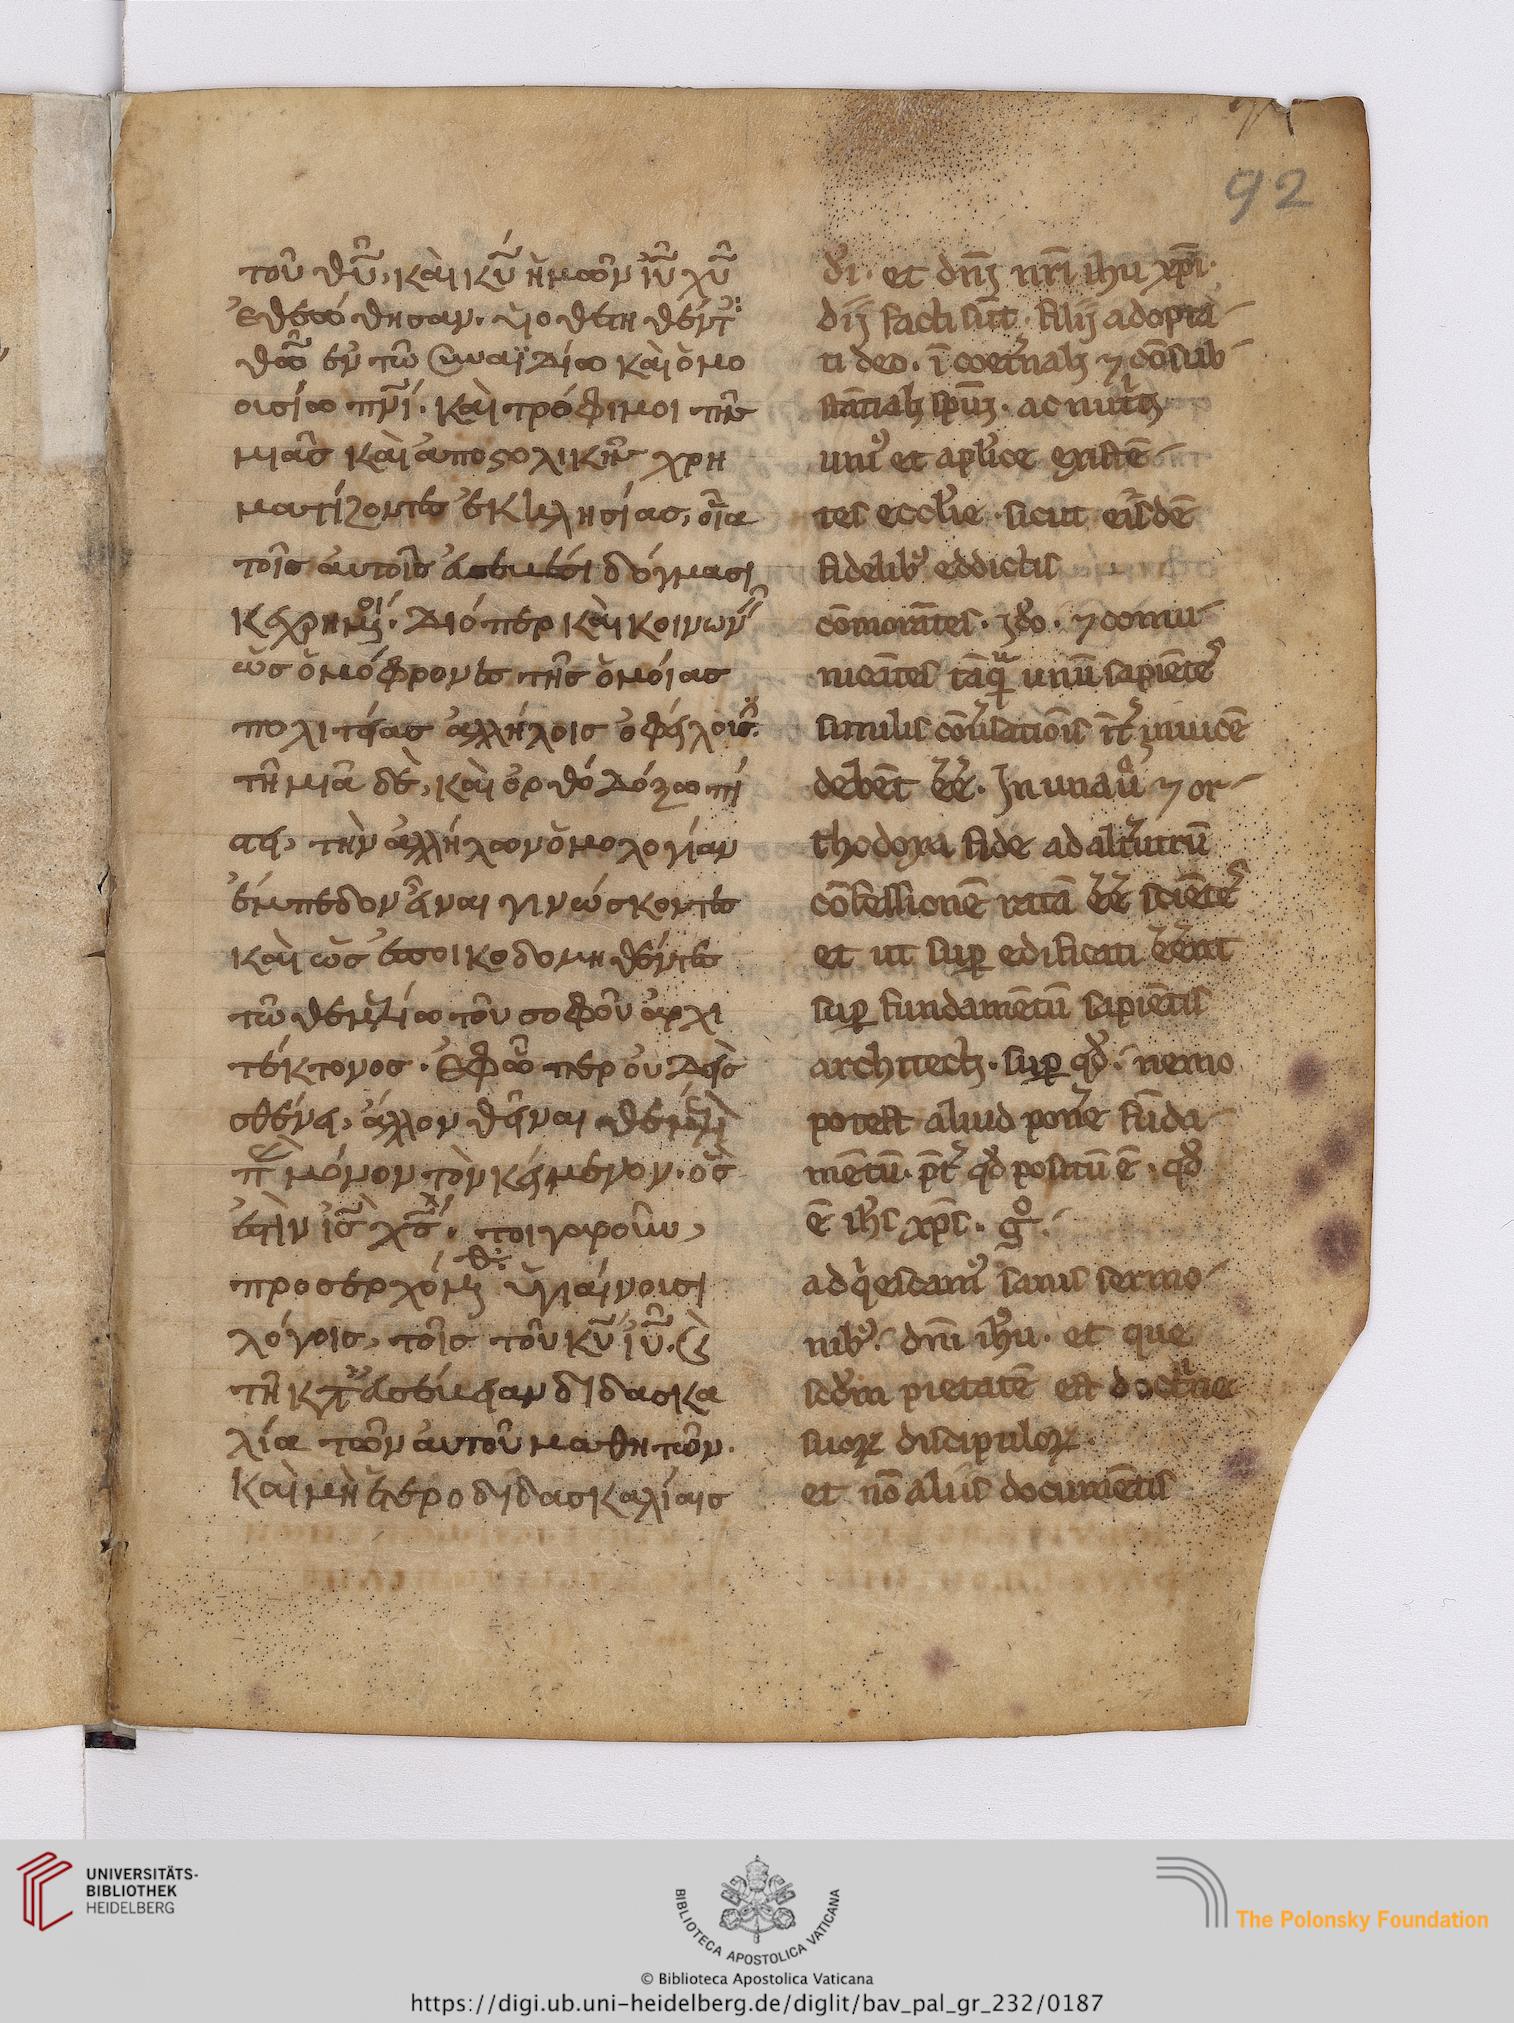 92
τοῦ θ̅υ̅, καὶ κ̅υ̅ ἡμῶν ἰ̅υ̅ χ̅υ̅
ἐθεώθησαν. υἱοθετηθέντ
θ̅ω̅ ἐν τῶ συναϊδίω καὶ ὁμο
ουσίω π̅ν̅ί. καὶ τρόφιμοι τῆς
μιᾶς καὶ ἀποστολικῆς χρη
ματίζοντες ἐκκλησίας, οἷα
τοῖς αὐτοῖς εὐσεβέσι δόγμασι
κεχρημ̅οι. διόπερ καὶ κοινων
ὡς ὁμόφρονες τῆς ὁμοίας
πολιτείας ἀλλήλοις ὀφείλουσ
τῆ μιᾶ δὲ, καὶ ὀρθοδόξω πί
στει, τὴν ἀλλήλων ὁμολογίαν
ἔμπεδον εἶναι γινώσκοντες
καὶ ὡς ἐποικοδομηθέντες
τῶ θεμελίω τοῦ σοφοῦ ἀρχι
τέκτονος. ἐφ' ὧ περ οὐδεὶς
σθένει, ἄλλον θεῖναι θεμέλι
π̅ μόνον τὸν κείμενον. ὅς
ἐστὶν ἰ̅ς̅ χ̅ς̅. τοιγαροῦν,
προσερχόμεθ ὑγιαίνουσι
λόγοις, τοῖς τοῦ κ̅υ̅ ἰ̅υ̅. καὶ
τῆ κατ εὐσέβειαν διδασκα
λία τῶν αὐτοῦ μαθητῶν.
καὶ μὴ ἑτεροδιδασκαλίαις
dī. et dn̄ꝫ nr̄i ihu xp̄i.
dij facti sūt. filij adopta-
ti deo. ī coet̄nalꝫ ⁊ cōsub-
stātialꝫ sp̄uꝫ. ac nut̄tꝫ
uni᷒ et aplice existē-
tes ecclie. sicut eisdē
fidelib᷒ eddictis
cōmorātes. Iđo. ⁊ comu-
nicātes tāq̄ unū sapiētes
similis cōūsationis īt̄ inuicē
debēt ēē. In una ū ⁊ or-
thodoxa fide ad alt̄utrū
cōfessionē ratā ēē sciētes
et ut suꝑ edificati ēēnt
suꝑ fundamētū sapiētis
architectꝫ. suꝑ qđ. nemo
potest aliud pon̄e fūda-
mētū. p̄t̄ qđ positū ē. qđ
ē ih̄s xp̄s. g°.
adq̄escam᷒ sanis sermo-
nib᷒. dn̄i ih̄u. et que
scđm pietatē est doct̄ne
suoꝝ discipuloꝝ.
et nō aliis documētis
UNIVERSITÄTS-
BIBLIOTHEK
HEIDELBERG
BIBLIOTECA APOSTOLICA VATICANA
The Polonsky Foundation
© Biblioteca Apostolica Vaticana
https://digi.ub.uni-heidelberg.de/diglit/bav_pal_gr_232/0187